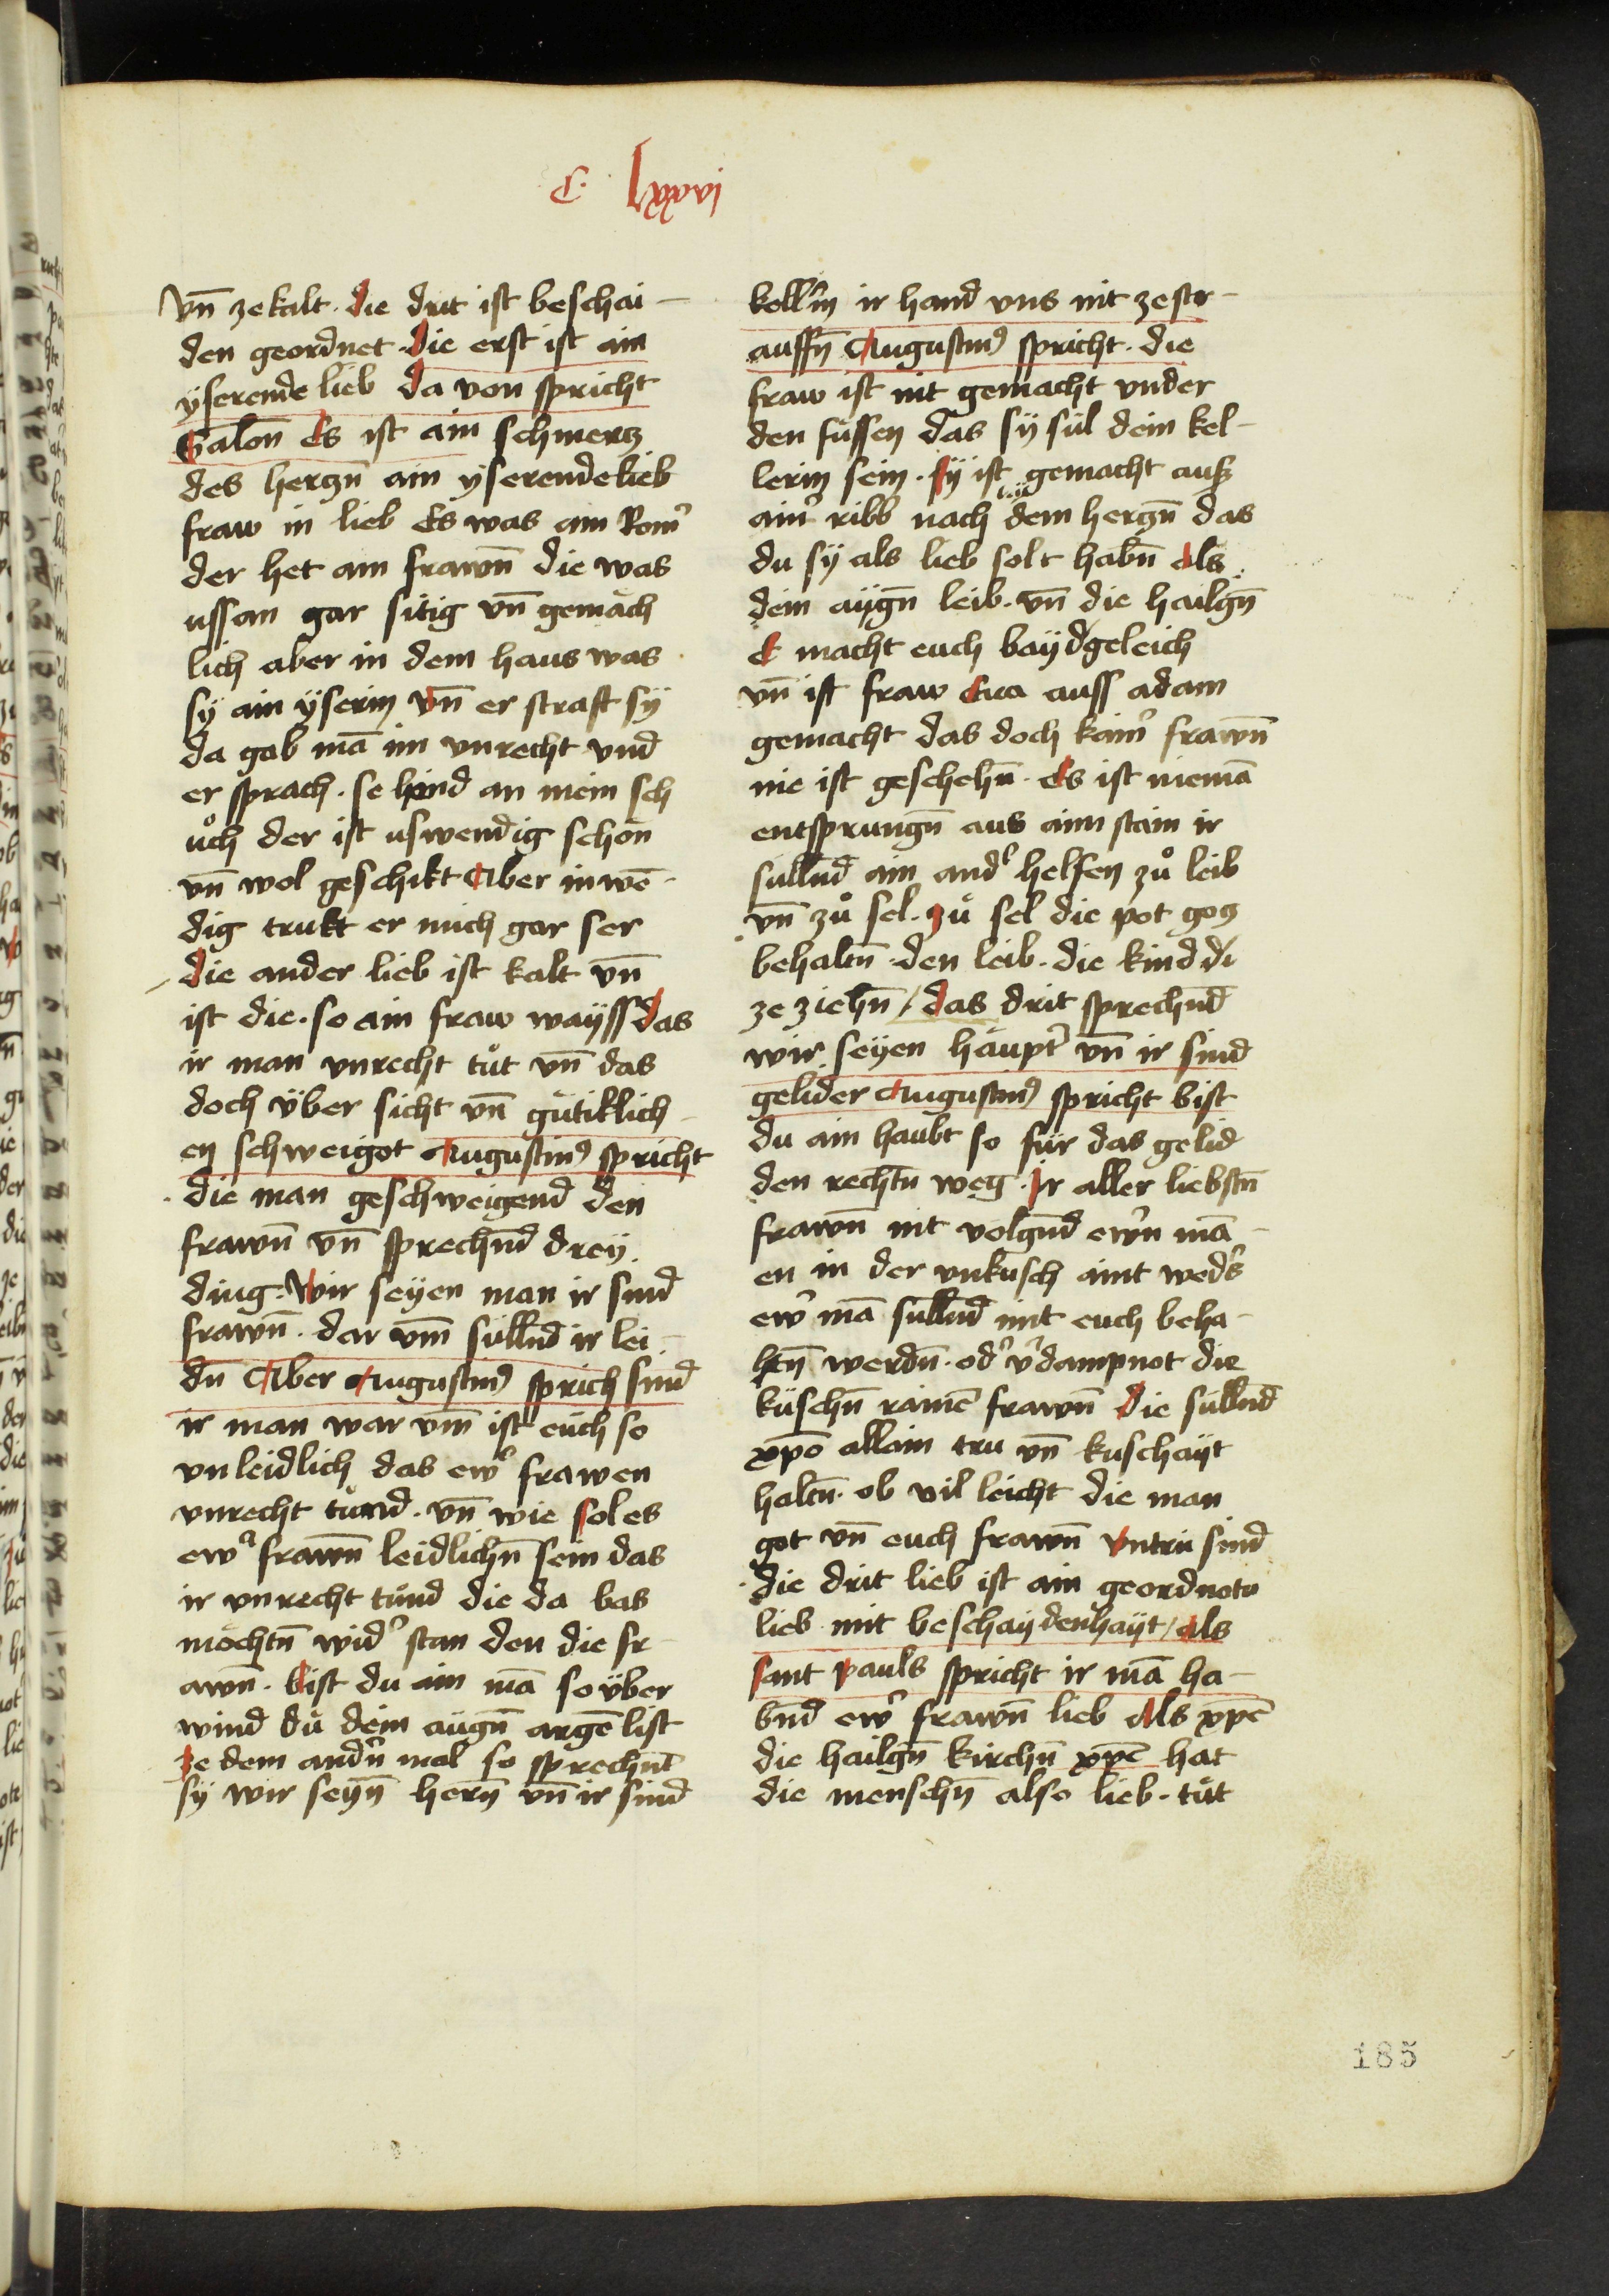 C. lxxxvj
vn̄ ze kalt. die drit ist beschai-
den geordnet. die erst ist ain
yserende lieb da von spricht
Salon̄ Es ist ain schmertz
des hertzn̄ ain yserendelieb
fraw in lieb Es was ain Rom̾
der het ain frawn̄ die was
ussan gar sitig vn̄ gemäch
lich aber in dem haus was
sÿ ain ÿserin vn̄ er straft sÿ
da gab mā im vnrecht vnd
er sprach. sehend an mein sch
ůch der ist uswendig schön
vn̄ wol geschikt Aber inwē-
dig trukt er mich gar ser
die ander lieb ist kalt vn̄
ist die. so ain fraw wayss das
ir man vnrecht tůt vn̄ das
doch über sicht vn̄ gütiklich-
en schweigot Augustin⁹ spricht
die man geschweigend den
frawn̄ vn̄ sprechn̄d dreÿ
ding. Wir seÿen man ir sind
frawn̄. dar vm̄ sülln̄d ir lei-
dn̄ Aber Augustin⁹ sprich sind
ir man war vm̄ ist euch so
vnleidlich das ew̾ frawen
vnrecht tůnd. vn̄ wie sol es
ew̾ frawn̄ leidlichn̄ sein das
ir vnrecht tůnd die da bas
möchtn̄ wid̾ stan den die fr
awn̄. bist du ain mā so über
wind du dein aügn̄ argē list
ze dem andn̾ mal so sprechn̄t
sÿ wir seyn̄ hern̄ vn̄ ir sind
kelln̾in ir hand vns nit ze str-
auffn̄ Augustin⁹ spricht. die
fraw ist nit gemacht vnder
den füssen das sÿ sül dein kel-
lerin sein. sÿ ist gemacht auß
ain̾ ribb nach beÿ dem hertzn̄ das
du sÿ als lieb solt habn̄ als
dein aÿgn̄ leib. vn̄ die hailgn̄
E macht euch baÿd geleich
vn̄ ist fraw Eua auss adam
gemacht das doch kain̾ frawn̄
nie ist geschehn̄. Es ist niemā
entsprungn̄ aus aim stain ir
sülln̄d ain and̾ helfen zů leib
vn̄ zů sel. zů sel die pot gotz
behaltn̄. den leib. die kind
ze ziehn̄ / das drit sprechn̄d
wir seÿen häupt̾ vn̄ ir sind
gelider Augustin⁹ spricht bist
du ain haubt so für das gelid
den rechtn̄ weg. Ir aller liebstn̄
frawn̄ nit volgn̄d ewn̾ mā-
en in der vnkusch aint wed̾s
ew̾ mā sülln̄d mit euch beha-
ltn̄ werdn̄. od̾ v̾dampnot die
küschn̄ rainē frawn̄ die sülln̄d
xp̄o allain tru vn̄ kuschaÿt
haltn̄. ob vil leicht die man
got vn̄ euch frawn̄ vntrü sind
die drit lieb ist ain geordnote
lieb mit beschaÿdenhaÿt / als
sant pauls spricht ir mā ha-
bn̄d ew̾ frawn̄ lieb Als xp̄c
die hailgn̄ kirchn̄ xp̄c hat
die menschn̄ also lieb. tůt
185